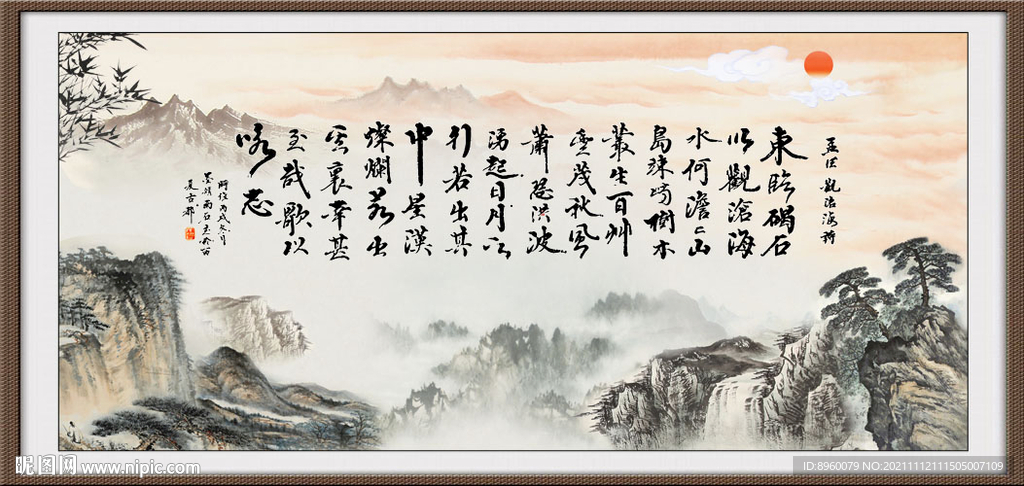 孟德觀滄海詩
東臨碣石
以觀滄海
水何澹〻山
島竦峙樹木
叢生百艸
豐茂秋風
蕭瑟洪波
湧起日月之
行若出其
中星漢
燦爛若出
其裏幸甚
至哉歌以
詠志
丙戌冬月
昵图网 www.nipic.com
ID:8960079 NO:20211112111505007109